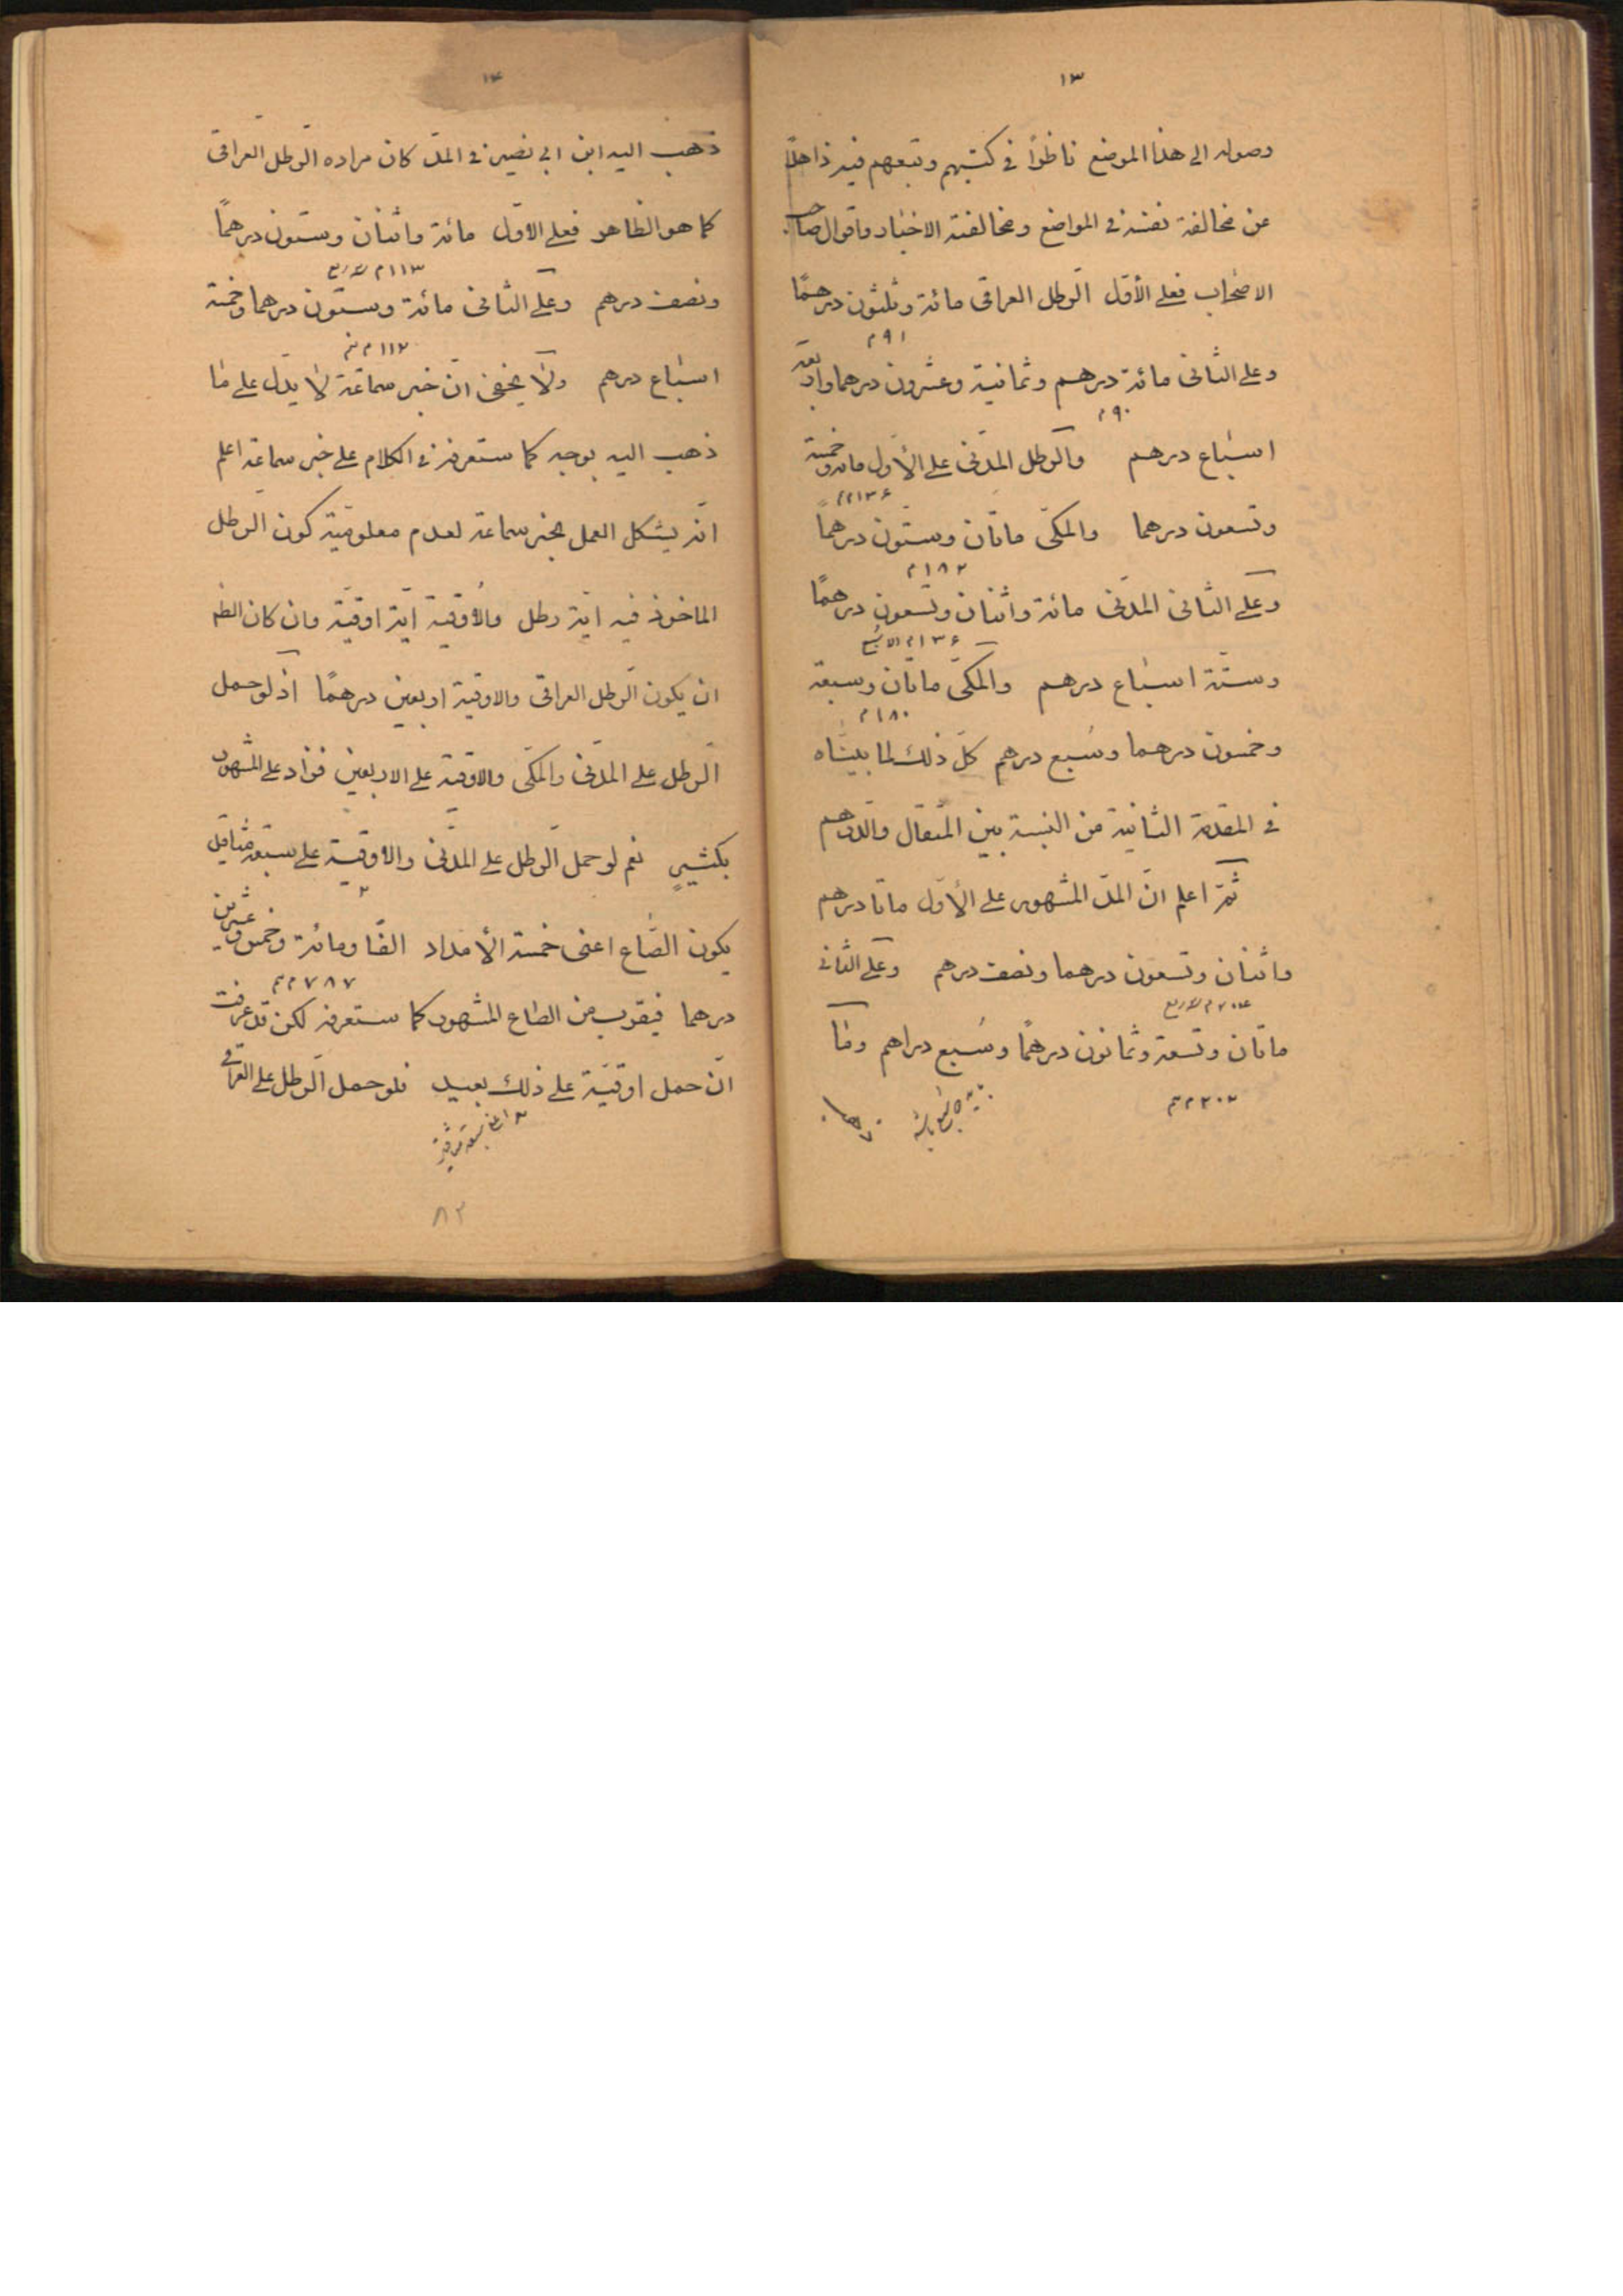 ١٣
وصوله الى هذا الموضع ناظرًا في كتبهم وتبعهم فيه ذاهلًا
عن مخالفة نفسه في المواضع ومخالفته الاخبار واقوال صاحب
الاصحاب فعلى الأول الرطل العراقى مائة وثلثون درهمًا
٩١ م
وعلى الثانى مائة درهم وثمانية وعشرون درهما واربعة
٩٠ م
اسباع درهم والرطل المدنى على الأول مائة وخمسة
١٣٦ م
وتسعون درهما والمكى ماتان وستون درهماً
١٨٢ م
وعلى الثانى المدنى مائة واثنان وتسعون درهمًا
١٣٦ م
وستة اسباع درهم والمكى ماتان وسبعة
١٨٠ م
وخمسون درهما وسُبع درهم كل ذلك لما بيناه
في المقدمة الثانية من النسبة بين المثقال والدرهم
ثمّ اعلم انّ المدّ المشهور على الأول ماتا درهم
واثنان وتسعون درهما ونصف درهم وعلى الثانى
٢٠٤ م
ماتان وتسعة وثمانون درهمًا وسُبع دراهم وما
٢٠٢ م
١٤
ذهب اليه ابن ابى نصير في المدّ كان مراده الرطل العراقى
كما هو الظاهر فعلى الاول مائة واثنان وستون درهمًا
١١٣ م
ونصف درهم وعلى الثانى مائة وستون درهما وخمسة
١١٢ م
اسباع درهم ولا يخفى انّ خبر سماعة لا يدل على ما
ذهب اليه بوجه كما ستعرفه في الكلام على خبر سماعة اعلم
انّه يشكل العمل بخبر سماعة لعدم معلومية كون الرطل
الماخوذ فيه ايّة رطل والأوقية ايّة اوقيّة وان كان الظ
ان يكون الرطل العراقى والاوقية اربعين درهمًا اذ لو حمل
الرطل على المدنى والمكى والاوقية على الاربعين فزاد على المشهور
بكثيرٍ نعم لو حمل الرطل على المدنى والاوقية على سبعة مثاقيل
٢
يكون الصّاع اعنى خمسة الأمداد الفًا ومائة وخمس وعشرين
٧٨٧ م
درهما فيقرب من الصاع المشهور كما ستعرفه لكن قد عرفت
انّ حمل اوقيّة على ذلك بعيد فلو حمل الرطل على العراقى
٨٢